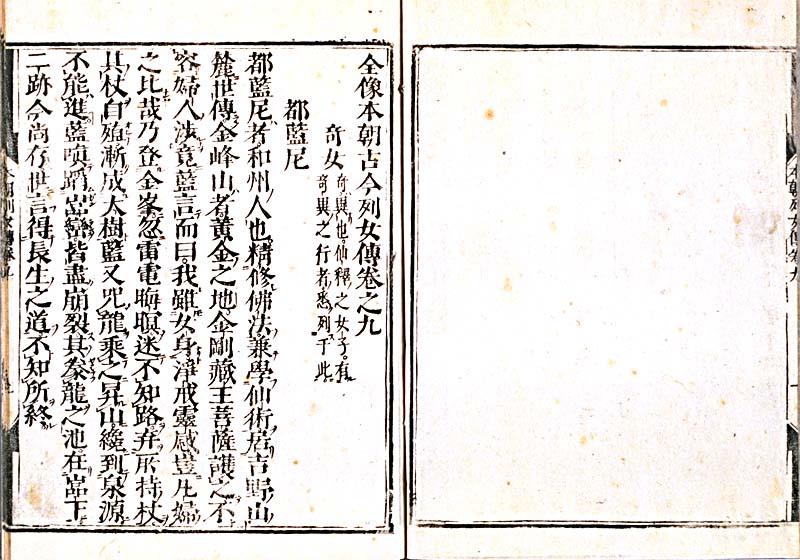 全像本朝古今列女傳卷之九
奇女
奇與也仙釋之女子有
奇異之行者悉列于此
都藍尼
都藍尼者和州人也精修佛法兼學仙術居吉野山
麓世傳金峰山者黃金之地金剛藏王菩薩護之不
容婦人渉竟藍言而曰我雖女身淨戒靈感豈凡婦
之比哉乃登金峯忽雷電晦暝迷不知路弃所持杖
其杖自殖漸成大樹藍又咒龍乘之昇山纔到泉源
不能進藍嗔蹈嵓巒皆盡崩裂其養龍之池在嵓下
二跡今尚存世言得長生之道不知所終
本朝列女傳卷九